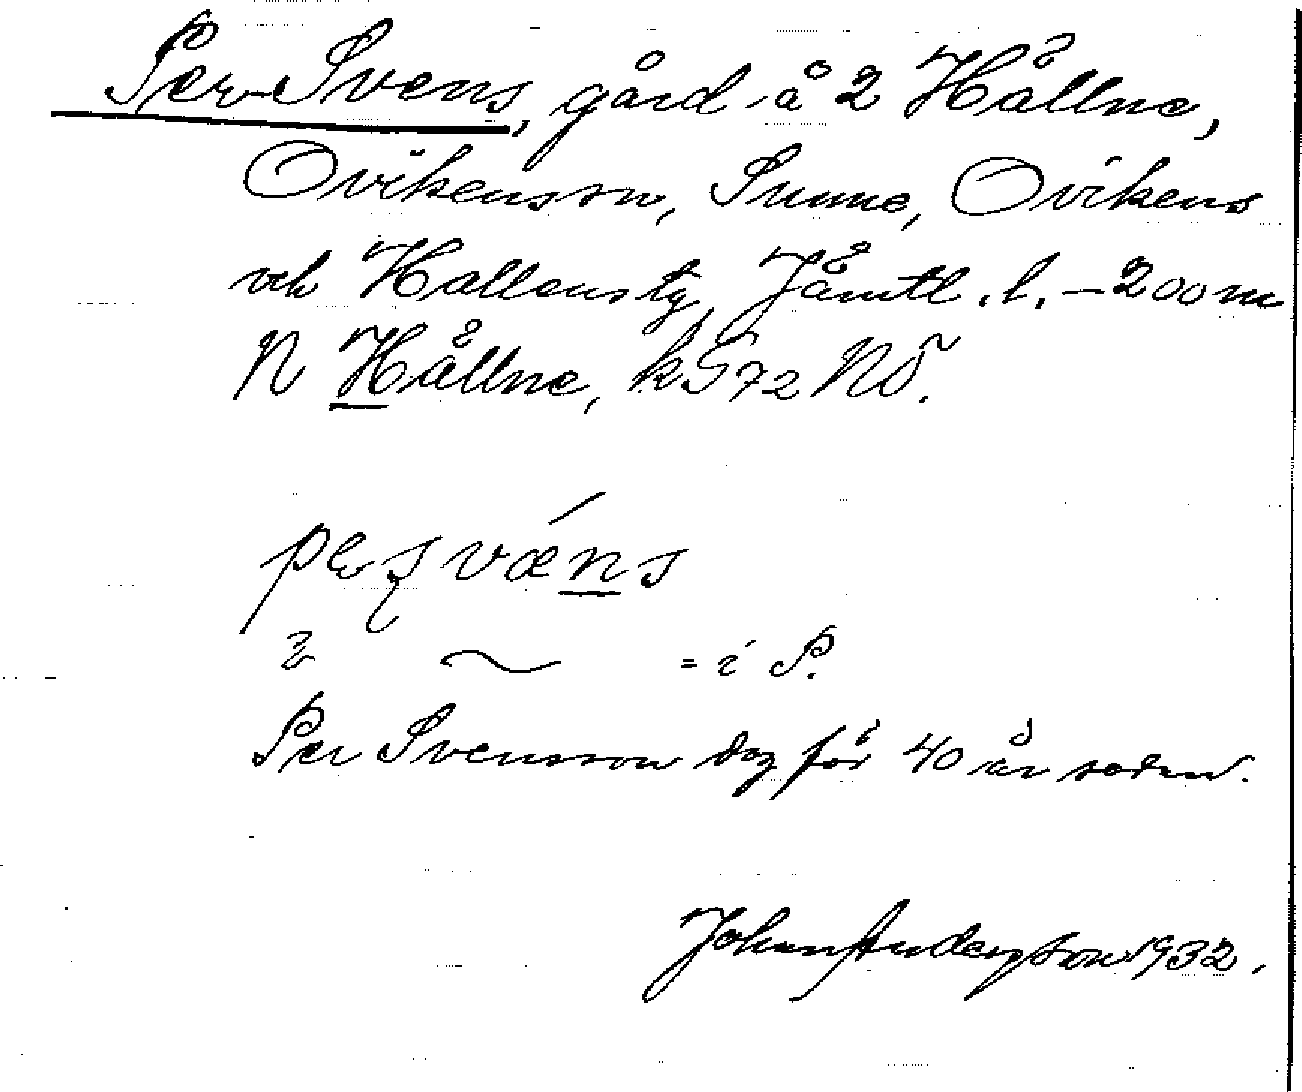 Per-Svens, gård å 2 Hållne,
Ovikensson, Sunne, Ovikens
och Hallens tg, Jämtl. l. – 200 m
N Hållne, kS72NÖ.
= i P.
Per Svensson dog för 40 år sedan.
Johan Andersson 1932.